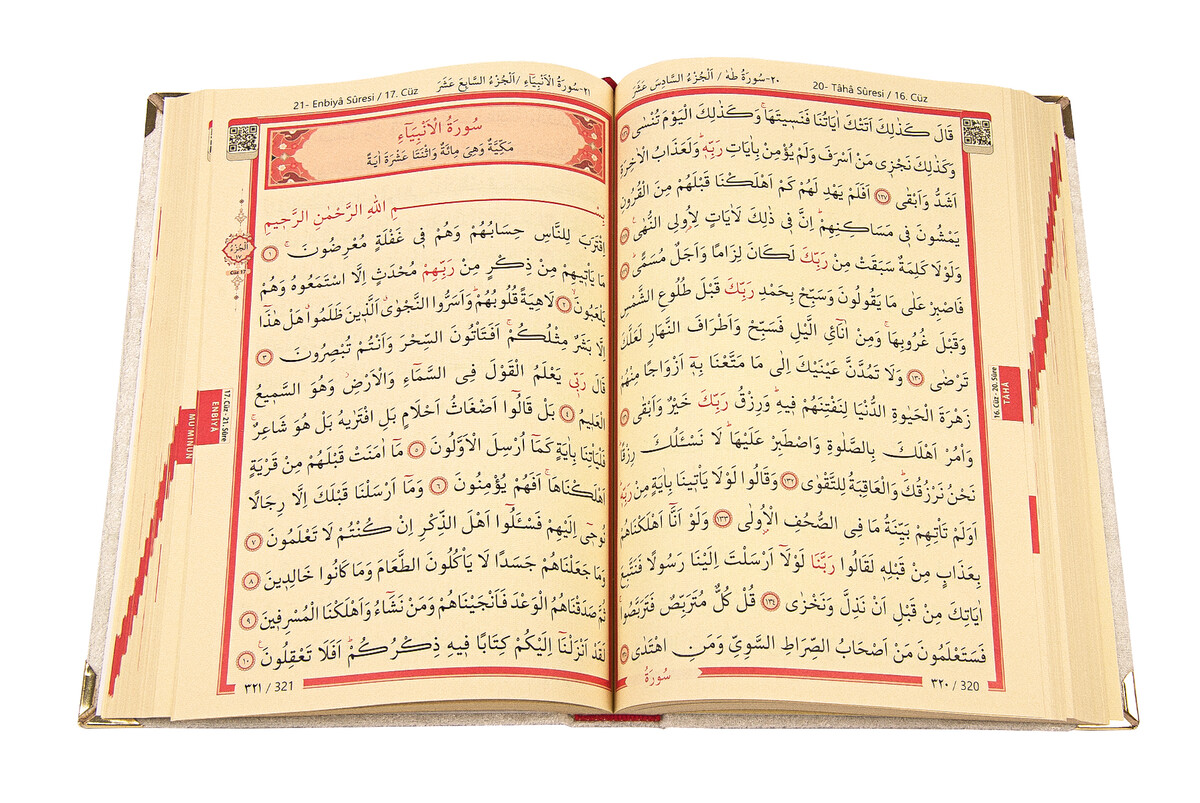 ٢٠-سُورَةُ طٰهٰ / اَلْجُزْءُ السَّادِسَ عَشَرَ
20- Tâhâ Sûresi / 16. Cüz
قَالَ كَذٰلِكَ اَتَتْكَ اٰيَاتُنَا فَنَسٖيتَهَاۚ وَكَذٰلِكَ الْيَوْمَ تُنْسٰى ﴿١٢٦﴾
وَكَذٰلِكَ نَجْزٖي مَنْ اَسْرَفَ وَلَمْ يُؤْمِنْ بِاٰيَاتِ رَبِّهٖؕ وَلَعَذَابُ الْاٰخِرَةِ
اَشَدُّ وَاَبْقٰى ﴿١٢٧﴾ اَفَلَمْ يَهْدِ لَهُمْ كَمْ اَهْلَكْنَا قَبْلَهُمْ مِنَ الْقُرُونِ
يَمْشُونَ فٖي مَسَاكِنِهِمْؕ اِنَّ فٖي ذٰلِكَ لَاٰيَاتٍ لِاُو۬لِي النُّهٰى ﴿١٢٨﴾
وَلَوْلَا كَلِمَةٌ سَبَقَتْ مِنْ رَبِّكَ لَكَانَ لِزَامًا وَاَجَلٌ مُسَمًّى ﴿١٢٩﴾
فَاصْبِرْ عَلٰى مَا يَقُولُونَ وَسَبِّحْ بِحَمْدِ رَبِّكَ قَبْلَ طُلُوعِ الشَّمْسِ
وَقَبْلَ غُرُوبِهَاۚ وَمِنْ اٰنَآئِ الَّيْلِ فَسَبِّحْ وَاَطْرَافَ النَّهَارِ لَعَلَّكَ
تَرْضٰى ﴿١٣٠﴾ وَلَا تَمُدَّنَّ عَيْنَيْكَ اِلٰى مَا مَتَّعْنَا بِهٖٓ اَزْوَاجًا مِنْهُمْ
زَهْرَةَ الْحَيٰوةِ الدُّنْيَا لِنَفْتِنَهُمْ فٖيهِؕ وَرِزْقُ رَبِّكَ خَيْرٌ وَاَبْقٰى ﴿١٣١﴾
وَأْمُرْ اَهْلَكَ بِالصَّلٰوةِ وَاصْطَبِرْ عَلَيْهَاؕ لَا نَسْـَٔلُكَ رِزْقًاؕ
نَحْنُ نَرْزُقُكَؕ وَالْعَاقِبَةُ لِلتَّقْوٰى ﴿١٣٢﴾ وَقَالُوا لَوْلَا يَأْتٖينَا بِاٰيَةٍ مِنْ رَبِّهٖؕ
اَوَلَمْ تَأْتِهِمْ بَيِّنَةُ مَا فِي الصُّحُفِ الْاُو۫لٰى ﴿١٣٣﴾ وَلَوْ اَنَّٓا اَهْلَكْنَاهُمْ
بِعَذَابٍ مِنْ قَبْلِهٖ لَقَالُوا رَبَّنَا لَوْلَٓا اَرْسَلْتَ اِلَيْنَا رَسُولًا فَنَتَّبِعَ
اٰيَاتِكَ مِنْ قَبْلِ اَنْ نَذِلَّ وَنَخْزٰى ﴿١٣٤﴾ قُلْ كُلٌّ مُتَرَبِّصٌ فَتَرَبَّصُواۚ
فَسَتَعْلَمُونَ مَنْ اَصْحَابُ الصِّرَاطِ السَّوِيِّ وَمَنِ اهْتَدٰى ﴿١٣٥﴾
سُورَةُ
٣٢٠ / 320
16. Cüz - 20. Sûre
TÂHÂ
٢١-سُورَةُ الْاَنْبِيَٓاءِ / اَلْجُزْءُ السَّابِعَ عَشَرَ
21- Enbiyâ Sûresi / 17. Cüz
سُورَةُ الْاَنْبِيَٓاءِ
مَكِّيَّةٌ وَهِيَ مِائَةٌ وَاثْنَتَا عَشْرَةَ اٰيَةً
بِسْمِ اللّٰهِ الرَّحْمٰنِ الرَّحٖيمِ
اِقْتَرَبَ لِلنَّاسِ حِسَابُهُمْ وَهُمْ فٖي غَفْلَةٍ مُعْرِضُونَۚ ﴿١﴾
مَا يَأْتٖيهِمْ مِنْ ذِكْرٍ مِنْ رَبِّهِمْ مُحْدَثٍ اِلَّا اسْتَمَعُوهُ وَهُمْ
يَلْعَبُونَۙ ﴿٢﴾ لَاهِيَةً قُلُوبُهُمْؕ وَاَسَرُّوا النَّجْوٰىۗ اَلَّذٖينَ ظَلَمُواۗ هَلْ هٰذَٓا
اِلَّا بَشَرٌ مِثْلُكُمْۚ اَفَتَأْتُونَ السِّحْرَ وَاَنْتُمْ تُبْصِرُونَ ﴿٣﴾
قَالَ رَبّٖي يَعْلَمُ الْقَوْلَ فِي السَّمَٓاءِ وَالْاَرْضِؗ وَهُوَ السَّمٖيعُ
الْعَلٖيمُ ﴿٤﴾ بَلْ قَالُٓوا اَضْغَاثُ اَحْلَامٍ بَلِ افْتَرٰيهُ بَلْ هُوَ شَاعِرٌۚ
فَلْيَأْتِنَا بِاٰيَةٍ كَمَٓا اُرْسِلَ الْاَوَّلُونَ ﴿٥﴾ مَٓا اٰمَنَتْ قَبْلَهُمْ مِنْ قَرْيَةٍ
اَهْلَكْنَاهَاۚ اَفَهُمْ يُؤْمِنُونَ ﴿٦﴾ وَمَٓا اَرْسَلْنَا قَبْلَكَ اِلَّا رِجَالًا
نُوحٖٓي اِلَيْهِمْ فَسْـَٔلُٓوا اَهْلَ الذِّكْرِ اِنْ كُنْتُمْ لَا تَعْلَمُونَ ﴿٧﴾
وَمَا جَعَلْنَاهُمْ جَسَدًا لَا يَأْكُلُونَ الطَّعَامَ وَمَا كَانُوا خَالِدٖينَ ﴿٨﴾
ثُمَّ صَدَقْنَاهُمُ الْوَعْدَ فَاَنْجَيْنَاهُمْ وَمَنْ نَشَٓاءُ وَاَهْلَكْنَا الْمُسْرِفٖينَ ﴿٩﴾
لَقَدْ اَنْزَلْنَٓا اِلَيْكُمْ كِتَابًا فٖيهِ ذِكْرُكُمْؕ اَفَلَا تَعْقِلُونَۚ ﴿١٠﴾
٣٢١ / 321
اَلْجُزْءُ
١٧
Cüz 17
17. Cüz - 21. Sûre
ENBİYÂ
MU'MİNÛN